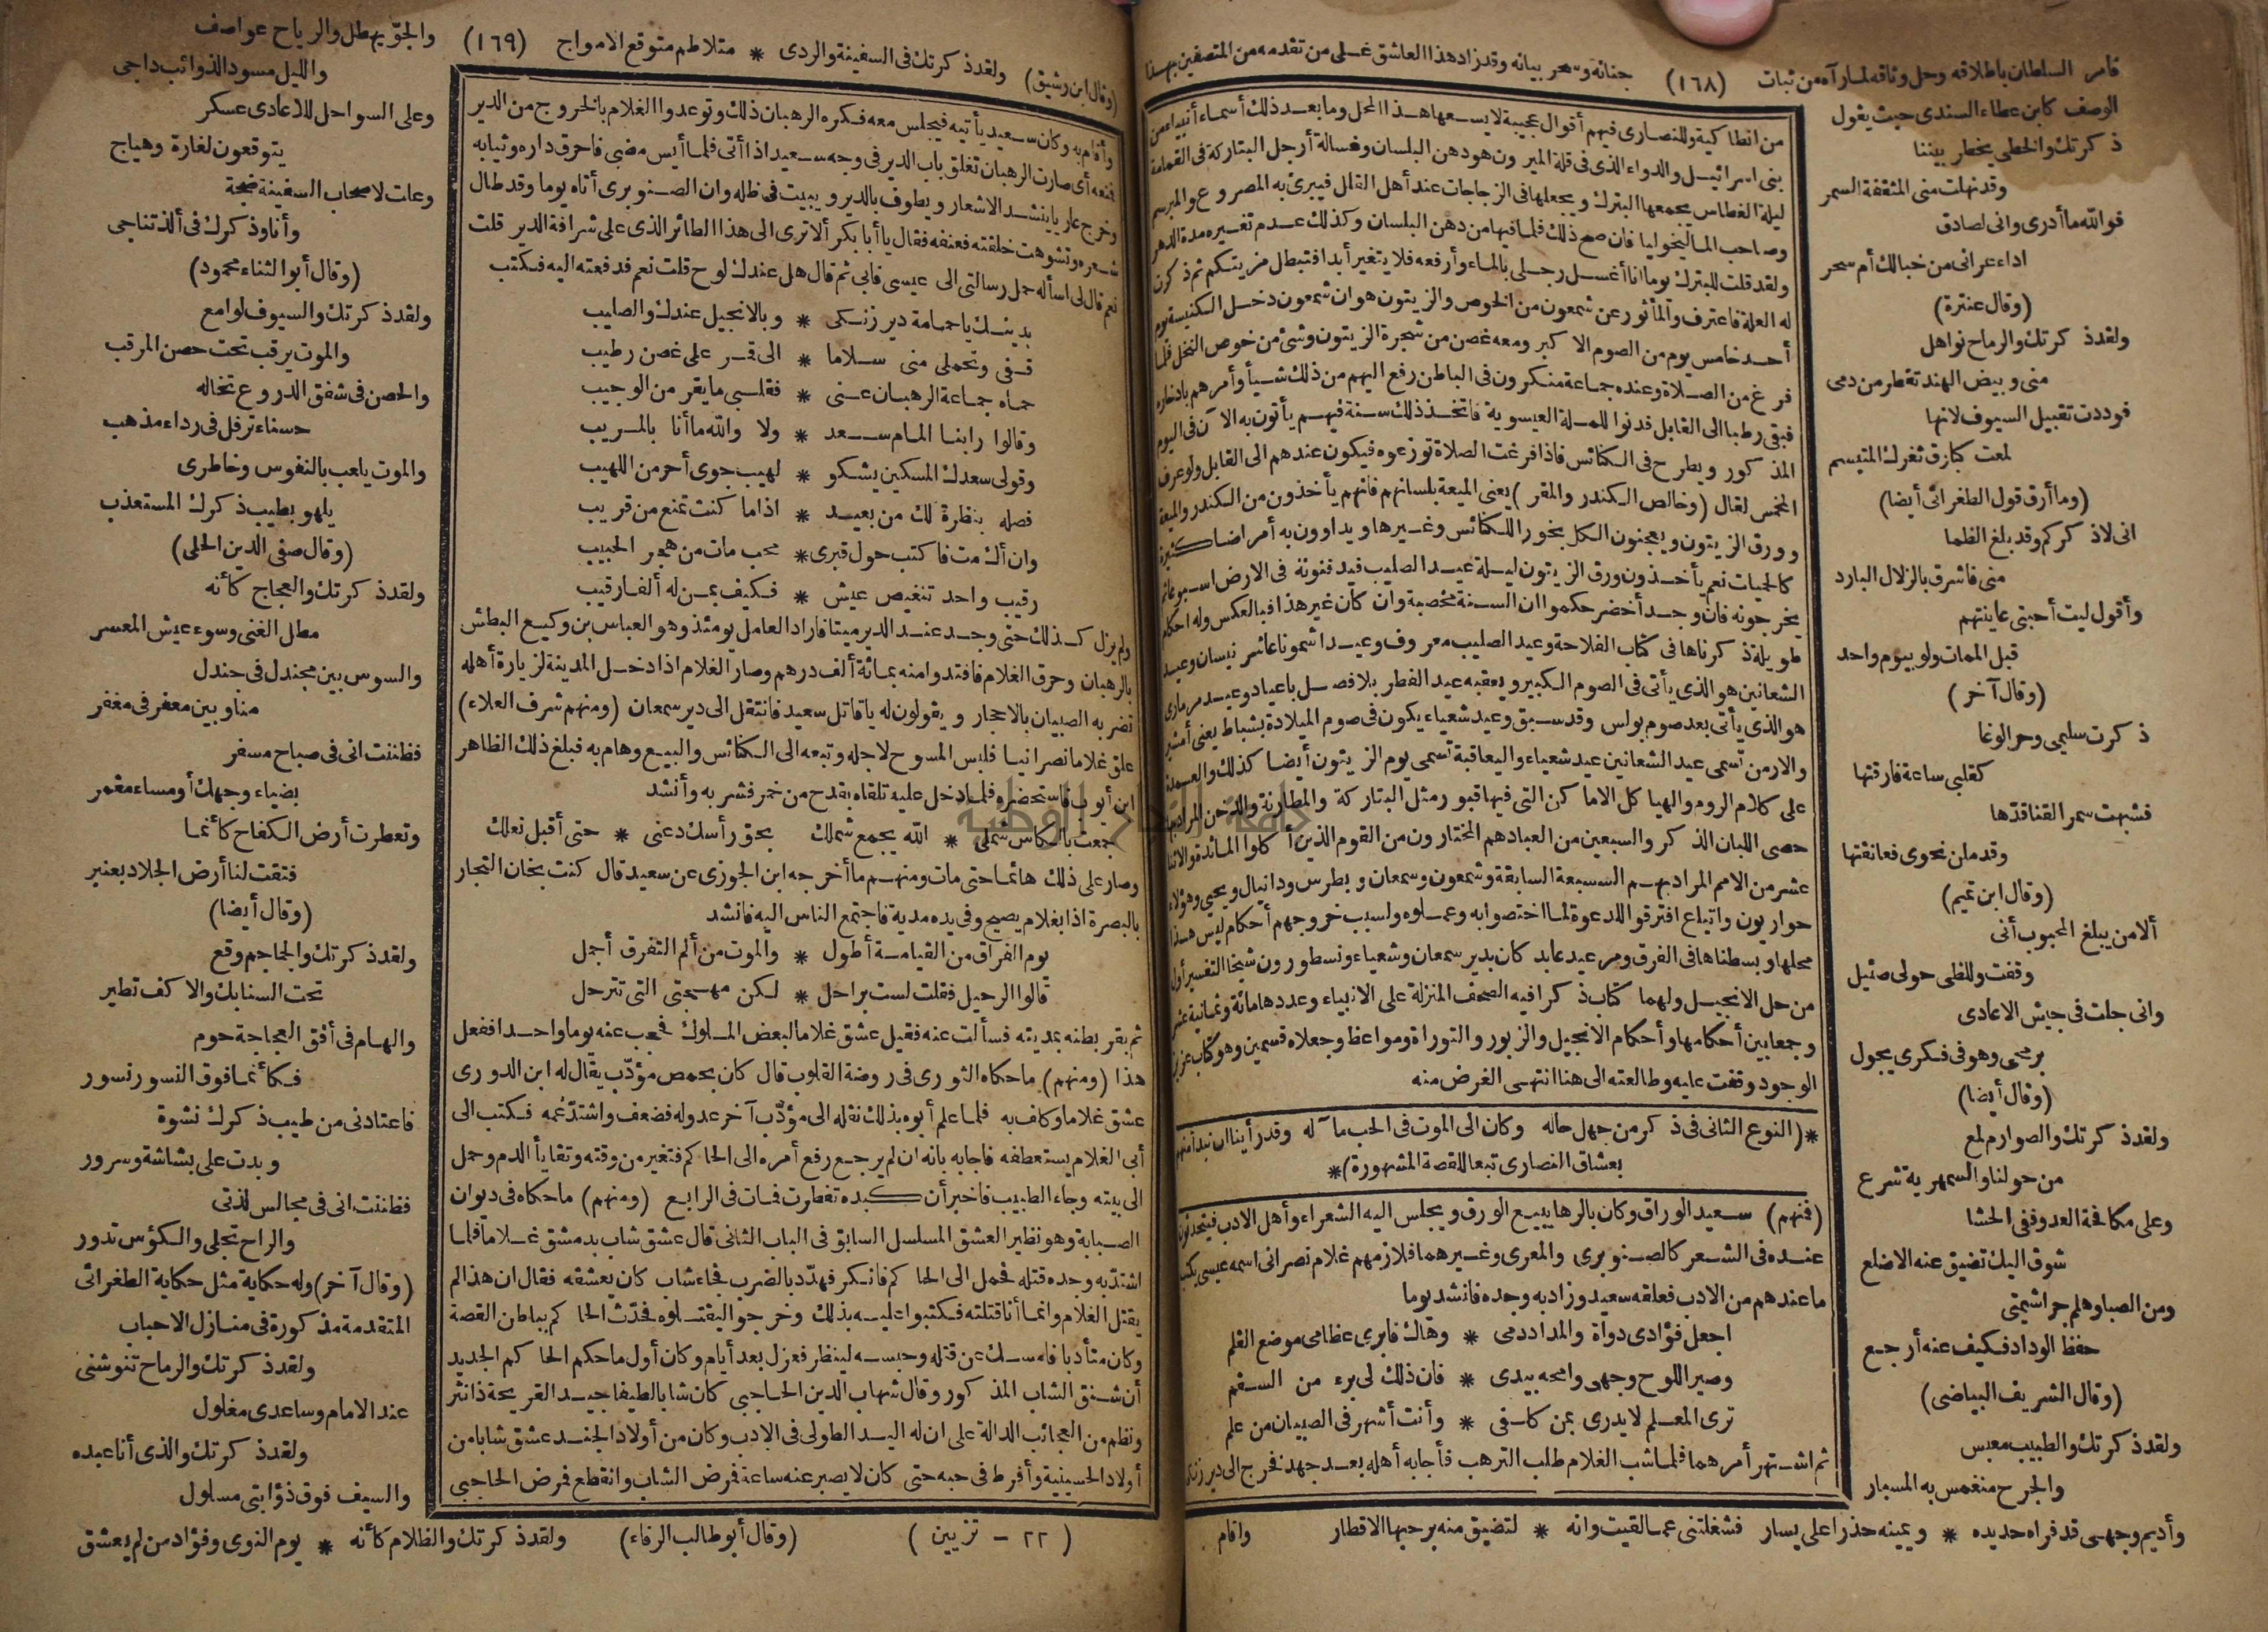 فامر السلطان باطلاقه وحل وثاقه لما رآه من ثبات (١٦٨) جنانه وسحر بيانه وقد زاد هذا العاشق على من تقدمه من المتصفين بهذا
الوصف كابن عطاء السندى حيث يقول
ذكرتك والخطى يخطر بيننا
وقد نهلت منى المثقفة السمر
فوالله ما أدرى وانى لصادق
اداء عرانى من خبالك أم سحر
(وقال عنترة)
ولقد ذكرتك والرماح نواهل
منى وبيض الهند تقطر من دمى
فوددت تقبيل السيوف لانها
لمعت كبارق ثغرك المتبسم
(وما أرق قول الطغرائى أيضا)
انى لاذكركم وقد بلغ الظما
منى فاشرق بالزلال البارد
وأقول ليت أحبتى عاينتهم
قبل الممات ولو بيوم واحد
(وقال آخر)
ذكرت سليمى وحر الوغا
كقلبى ساعة فارقتها
فشبهت سمر القنا قدّها
وقد ملن نحوى فعانقتها
(وقال ابن تميم)
ألا من يبلغ المحبوب أنى
وقفت وللظى حولى صئيل
وانى جلت فى جيش الاعادى
برمحى وهو فى فكرى يجول
(وقال أيضا)
ولقد ذكرتك والصوارم لمع
من حولنا والسمهرية شرع
وعلى مكافحة العدو ففى الحشا
شوق اليك تضيق عنه الاضلع
ومن الصبا وهلم جرا شيمتى
حفظ الوداد فكيف عنه أرجع
(وقال الشريف البياضى)
ولقد ذكرتك والطبيب معبس
والجرح منغمس به المسبار
وأديم وجهى قد فراه حديده * ويمينه حذرا على يسار فشغلتنى عما لقيت وانه * لتضيق منه برحبها الاقطار واقام
من انطاكية وللنصارى فيهم أقوال عجيبة لا يسعها هذا المحل وما بعد ذلك أسماء أنبياء من
بنى اسرائيل والدواء الذى فى قلة الميرون هو دهن البلسان وغسالة أرجل البتاركة فى القمامة
ليلة الغطاس يجمعها البترك ويجعلها فى الزجاجات عند أهل القلل فيبرئ به المصروع والمبرسم
وصاحب الماليخوليا فان صح ذلك فلما فيها من دهن البلسان وكذلك عدم تغيره مدة الدهر
ولقد قلت للبترك يوما انا أغسل رجلى بالماء وأرفعه فلا يتغير أبدا فتبطل مزيتكم ثم ذكرت
له العلة فاعترف والمأثور عن شمعون من الخوص والزيتون هو ان شمعون دخل الكنيسة يوم
أحد خامس يوم من الصوم الاكبر ومعه غصن من شجرة الزيتون وشئ من خوص النخل فلما
فرغ من الصلاة وعنده جماعة منكرون فى الباطن رفع اليهم من ذلك شيأ وأمرهم بادخاره
فبقى رطبا الى القابل فدنوا للملة العيسوية فاتخذ ذلك سنة فيهم يأتون به الآن فى اليوم
المذكور ويطرح فى الكنائس فاذا فرغت الصلاة توزعوه فيكون عندهم الى القابل ولو عرف
المخمس لقال (وخالص الكندر والمقر) يعنى الميعة بلسانهم فانهم يأخذون من الكندر والميعة
وورق الزيتون ويعجنون الكل بخور اللكنائس وغيرها ويداوون به أمراضا كثيرة
كالحميات نعم يأخذون ورق الزيتون ليلة عيد الصليب فيدفنونه فى الارض اسبوعا ثم
يخرجونه فان وجد أخضر حكموا ان السنة مخصبة وان كان غير هذا فبالعكس وله احكام
طويلة ذكرناها فى كتاب الفلاحة وعيد الصليب معروف وعيد اشمونا عاشر نيسان وعيد
الشعانين هو الذى يأتى فى الصوم الكبير ويعقبه عيد الفطر بلا فصل باعياد وعيد مر مارى
هو الذى يأتى بعد صوم بولس وقد سبق وعيد شعياء يكون فى صوم الميلادة بشباط يعنى أمشير
والارمن تسمى عيد الشعانين عيد شعياء واليعاقبة تسمى يوم الزيتون أيضا كذلك والعمدة
على كلام الروم والهيا كل الاماكن التى فيها قبور مثل البتاركة والمطارنة والدخن المراد بها
حصى اللبان الذكر والسبعين من العباد هم المختارون من القوم الذين أكلوا المائدة والاثنا
عشر من الامم المراد بهم السبعة السابقة وشمعون وسمعان وبطرس ودانيال ويحيى وهؤلاء
حواريون واتباع افترقوا للدعوة لما اختصوا به وعملوه ولسبب خروجهم أحكام ليس هذا
محلها وبسطناها فى الفرق ومر عيد عابد كان بدير سمعان وشعياء ونسطورون شيخا التفسير أول
من حل الانجيل ولهما كتاب ذكرا فيه الصحف المنزلة على الانبياء وعددها مائة وثمانية عشر
وجمعا بين أحكامها وأحكام الانجيل والزبور والتوراة ومواعظ وجعلاه قسمين وهو كتاب عزيز
الوجود وقفت عليه وطالعته الى هنا انتهى الغرض منه
*(النوع الثانى فى ذكر من جهل حاله وكان الى الموت فى الحب مآله وقد رأينا ان نبدأ منهم
بعشاق النصارى تبعا للقصة المشهورة)*
(فمنهم) سعيد الوراق وكان بالرها يبيع الورق ويجلس اليه الشعراء وأهل الادب فيتحدثون
عنده فى الشعر كالصنوبرى والمعرى وغيرهما فلازمهم غلام نصرانى اسمه عيسى يكتب
ما عندهم من الادب فعلقه سعيد وزاد به وجده فانشد يوما
اجعل فؤادى دواة والمداد دمى * وهاك فابرى عظامى موضع القلم
وصير اللوح وجهى وامحه بيدى * فان ذلك لى برء من السقم
ترى المعلم لا يدرى بمن كلفى * وأنت أشهر فى الصبيان من علم
ثم اشتهر أمرهما فلما شب الغلام طلب الترهب فأجابه أهله بعد جهد فخرج الى دير زنكى
(وقال ابن رشيق) ولقد ذكرتك فى السفينة والردى * متلاطم متوقع الامواج (١٦٩) والجوّ يهطل والرياح عواصف
والليل مسود الذوائب داجى
وعلى السواحل للاعادى عسكر
يتوقعون لغارة وهياج
وعلت لاصحاب السفينة ضجة
وأنا وذكرك فى ألذ تناجى
(وقال أبو الثناء محمود)
ولقد ذكرتك والسيوف لوامع
والموت يرقب تحت حصن المرقب
والحصن فى شفق الدروع تخاله
حسناء ترفل فى رداء مذهب
والموت يلعب بالنفوس وخاطرى
يلهو بطيب ذكرك المستعذب
(وقال صفى الدين الحلى)
ولقد ذكرتك والعجاج كأنه
مطل الغنى وسوء عيش المعسر
والسوس بين مجندل فى جندل
منا وبين معفر فى مغفر
فظننت انى فى صباح مسفر
بضياء وجهك أو مساء مقمر
وتعطرت أرض الكفاح كأنما
فتقت لنا أرض الجلاد بعنبر
(وقال أيضا)
ولقد ذكرتك والجماجم وقع
تحت السنابك والاكف تطير
والهام فى أفق العجاجة حوم
فكأنما فوق النسور نسور
فاعتادنى من طيب ذكرك نشوة
وبدت على بشاشة وسرور
فظننت انى فى مجالس لذتى
والراح تجلى والكؤس تدور
(وقال آخر) وله حكاية مثل حكاية الطغرائى
المتقدمة مذكورة فى منازل الاحباب
ولقد ذكرتك والرماح تنوشنى
عند الامام وساعدى مغلول
ولقد ذكرتك والذى أنا عبده
والسيف فوق ذؤابتى مسلول
وأقام به وكان سعيد يأتيه فيجلس معه فكره الرهبان ذلك وتوعدوا الغلام بالخروج من الدير
فمنعه أى صارت الرهبان تغلق باب الدير فى وجه سعيد اذا أتى فلما أيس مضى فاحرق داره وثيابه
وخرج عاريا ينشد الاشعار ويطوف بالدير ويبيت فى ظله وان الصنوبرى أتاه يوما وقد طال
شعره وتشوهت خلقته فعنفه فقال يا أبا بكر ألا ترى الى هذا الطائر الذى على شرافة الدير قلت
نعم قال لى اسأله حمل رسالتى الى عيسى فابى ثم قال هل عندك لوح قلت نعم فدفعته اليه فكتب
بدينك يا حمامة دير زنكى * وبالانجيل عندك والصليب
قفى وتحملى منى سلاما * الى قمر على غصن رطيب
حماه جماعة الرهبان عنى * فقلبى ما يقر من الوجيب
وقالوا رابنا المام سعد * ولا والله ما أنا بالمريب
وقولى سعدك المسكين يشكو * لهيب جوى أحر من اللهيب
فصله بنظرة لك من بعيد * اذا ما كنت تمنع من قريب
وان أك مت فاكتب حول قبرى * محب مات من هجر الحبيب
رقيب واحد تنغيص عيش * فكيف بمن له ألفا رقيب
ولم يزل كذلك حتى وجد عند الدير ميتا فاراد العامل يومئذ وهو العباس بن وكيع البطش
بالرهبان وحرق الغلام فافتدوا منه بمائة ألف درهم وصار الغلام اذا دخل المدينة لزيارة أهله
تضربه الصبيان بالاحجار ويقولون له يا قاتل سعيد فانتقل الى دير سمعان (ومنهم شرف العلاء)
علق غلاما نصرانيا فلبس المسوح لاجله وتبعه الى الكنائس والبيع وهام به فبلغ ذلك الظاهر
ابن أيوب فاستحضره فلما دخل عليه تلقاه بقدح من خمر فشربه وأنشد
جمعت بالكاس شملى * الله يجمع شملك بحق رأسك دعنى * حتى أقبل نعلك
وصار على ذلك هائما حتى مات ومنهم ما أخرجه ابن الجوزى عن سعيد قال كنت بخان التجار
بالبصرة اذا بغلام يصيح وفى يده مدية فاجتمع الناس اليه فانشد
يوم الفراق من القيامة أطول * والموت من ألم التفرق أجمل
قالوا الرحيل فقلت لست براحل * لكن مهجتى التى تترحل
ثم بقر بطنه بمديته فسألت عنه فقيل عشق غلاما لبعض الملوك فحجب عنه يوما واحدا ففعل
هذا (ومنهم) ما حكاه الثورى فى روضة القلوب قال كان بحمص مؤدّب يقال له ابن الدورى
عشق غلاما وكلف به فلما علم أبوه بذلك نقله الى مؤدّب آخر عدو له فضعف واشتدّ غمه فكتب الى
أبى الغلام يستعطفه فاجابه بانه ان لم يرجع رفع أمره الى الحاكم فتغير من وقته وتقايأ الدم وحمل
الى بيته وجاء الطبيب فاخبر أن كبده تفطرت فمات فى الرابع (ومنهم) ما حكاه فى ديوان
الصبابة وهو نظير العشق المسلسل السابق فى الباب الثانى قال عشق شاب بدمشق غلاما فلما
اشتدّ به وجده قتله فحمل الى الحاكم فانكر فهدّد بالضرب فجاء شاب كان يعشقه فقال ان هذا لم
يقتل الغلام وانما أنا قتلته فكتبوا عليه بذلك وخرجوا ليقتلوه فحدّث الحاكم بباطن القصة
وكان متأدبا فامسك عن قتله وحبسه لينظر فعزل بعد أيام وكان أول ما حكم الحاكم الجديد
أن شنق الشاب المذكور وقال شهاب الدين الحاجبى كان شابا لطيفا جيد القريحة ذا نثر
ونظم من العجائب الدالة على ان له اليد الطولى فى الادب وكان من أولاد الجند عشق شابا من
أولاد الحسينية وأفرط فى حبه حتى كان لا يصبر عنه ساعة فمرض الشاب وانقطع فمرض الحاجبى
(٢٢ - تزيين) (وقال أبو طالب الرفاء) ولقد ذكرتك والظلام كأنه * يوم النوى وفؤاد من لم يعشق